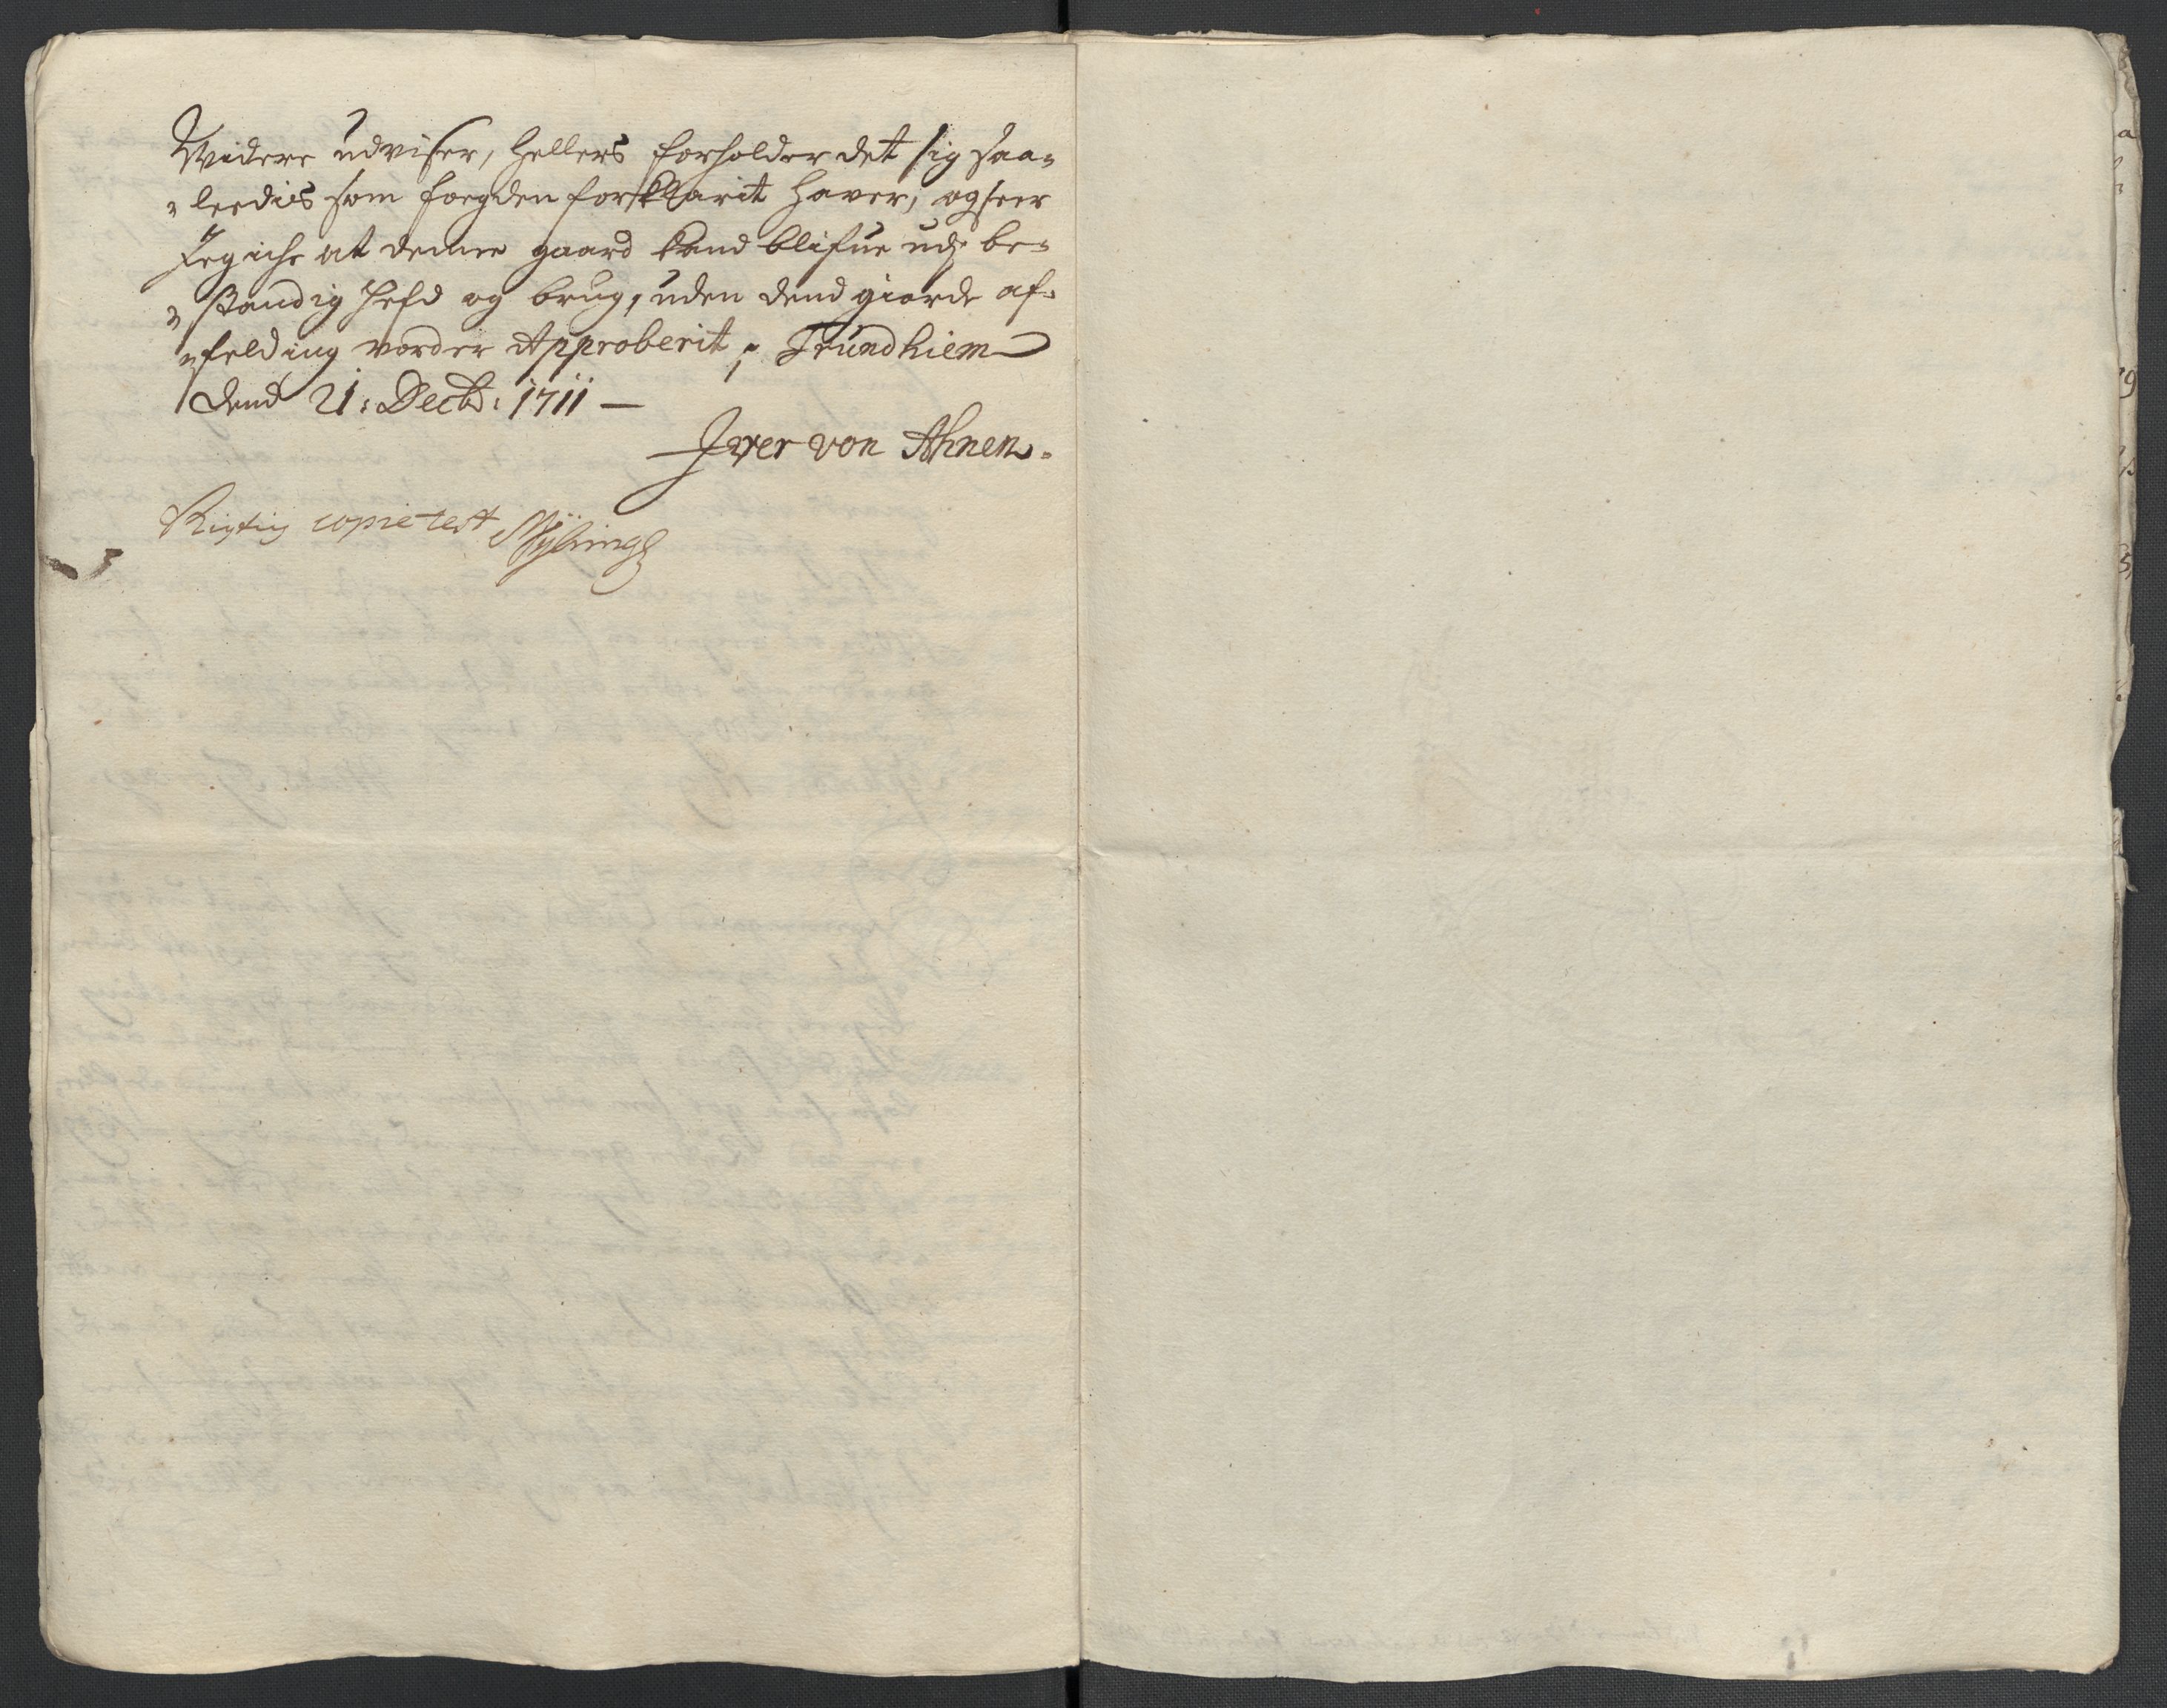 Widere udviser, hellers forholder det sig saa-
leedis som fogden forklarit haver, og seer
Jeg iche at denne gaard kand blifue udj be-
standig hefd og brug, uden dend giorde af-
felding vorder Approberit, Trundhiem
dend 21: Decbr: 1711 —
Jver von Ahnen.
Rigtig copie test